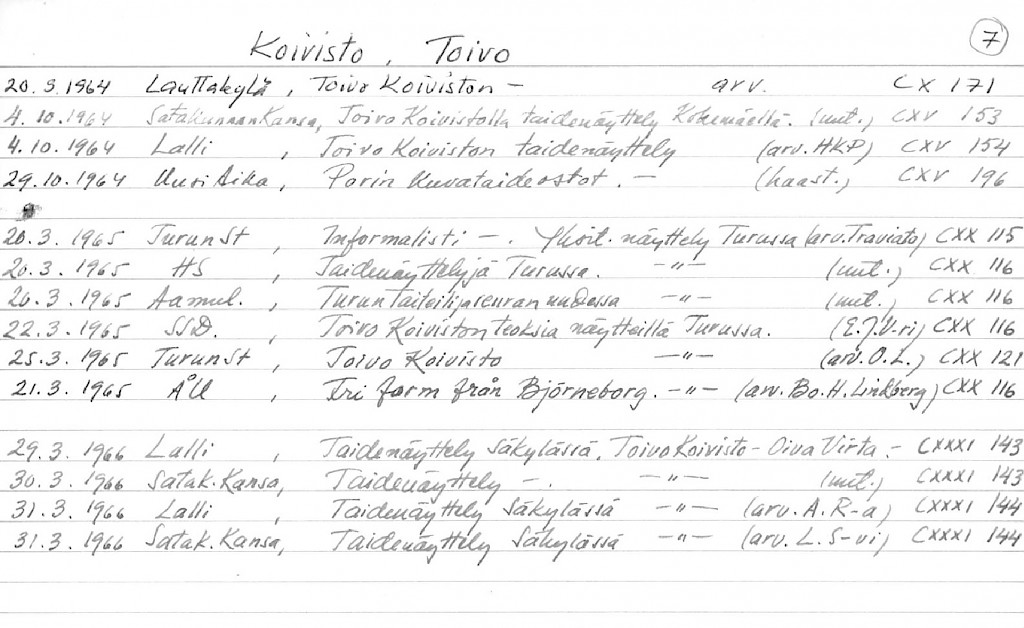 7
Koivisto, Toivo
20.9.1964 Lauttakylä, Toivo Koiviston — arv. CX 171
4.10.1964 Satakunnan Kansa, Toivo Koivistolla taidenäyttely Kokemäellä. (uut.) CXV 153
4.10.1964 Lalli, Toivo Koiviston taidenäyttely (arv. HKP) CXV 154
29.10.1964 Uusi Aika, Porin kuvataideostot. — (haast.) CXV 196
20.3.1965 TurunSt, Informalisti —. Yksit. näyttely Turussa (arv. Traviato) CXX 115
20.3.1965 HS, Taidenäyttelyjä Turussa. —"— (uut.) CXX 116
20.3.1965 Aamul., Turun Taiteilijaseuran uudessa —"— (uut.) CXX 116
22.3.1965 SSD., Toivo Koiviston teoksia näytteillä Turussa. (E.J.V-ri) CXX 116
25.3.1965 TurunSt, Toivo Koivisto —"— (arv. O.L.) CXX 121
21.3.1965 ÅU, Fri form från Björneborg. —"— (arv. Bo.H.Lindberg) CXX 116
29.3.1966 Lalli, Taidenäyttely Säkylässä, Toivo Koivisto – Oiva Virta. – CXXXI 143
30.3.1966 Satak.Kansa, Taidenäyttely —. —"— (uut.) CXXXI 143
31.3.1966 Lalli, Taidenäyttely Säkylässä —"— (arv. A.R-a) CXXXI 144
31.3.1966 Satak.Kansa, Taidenäyttely Säkylässä —"— (arv. L.S-vi) CXXXI 144